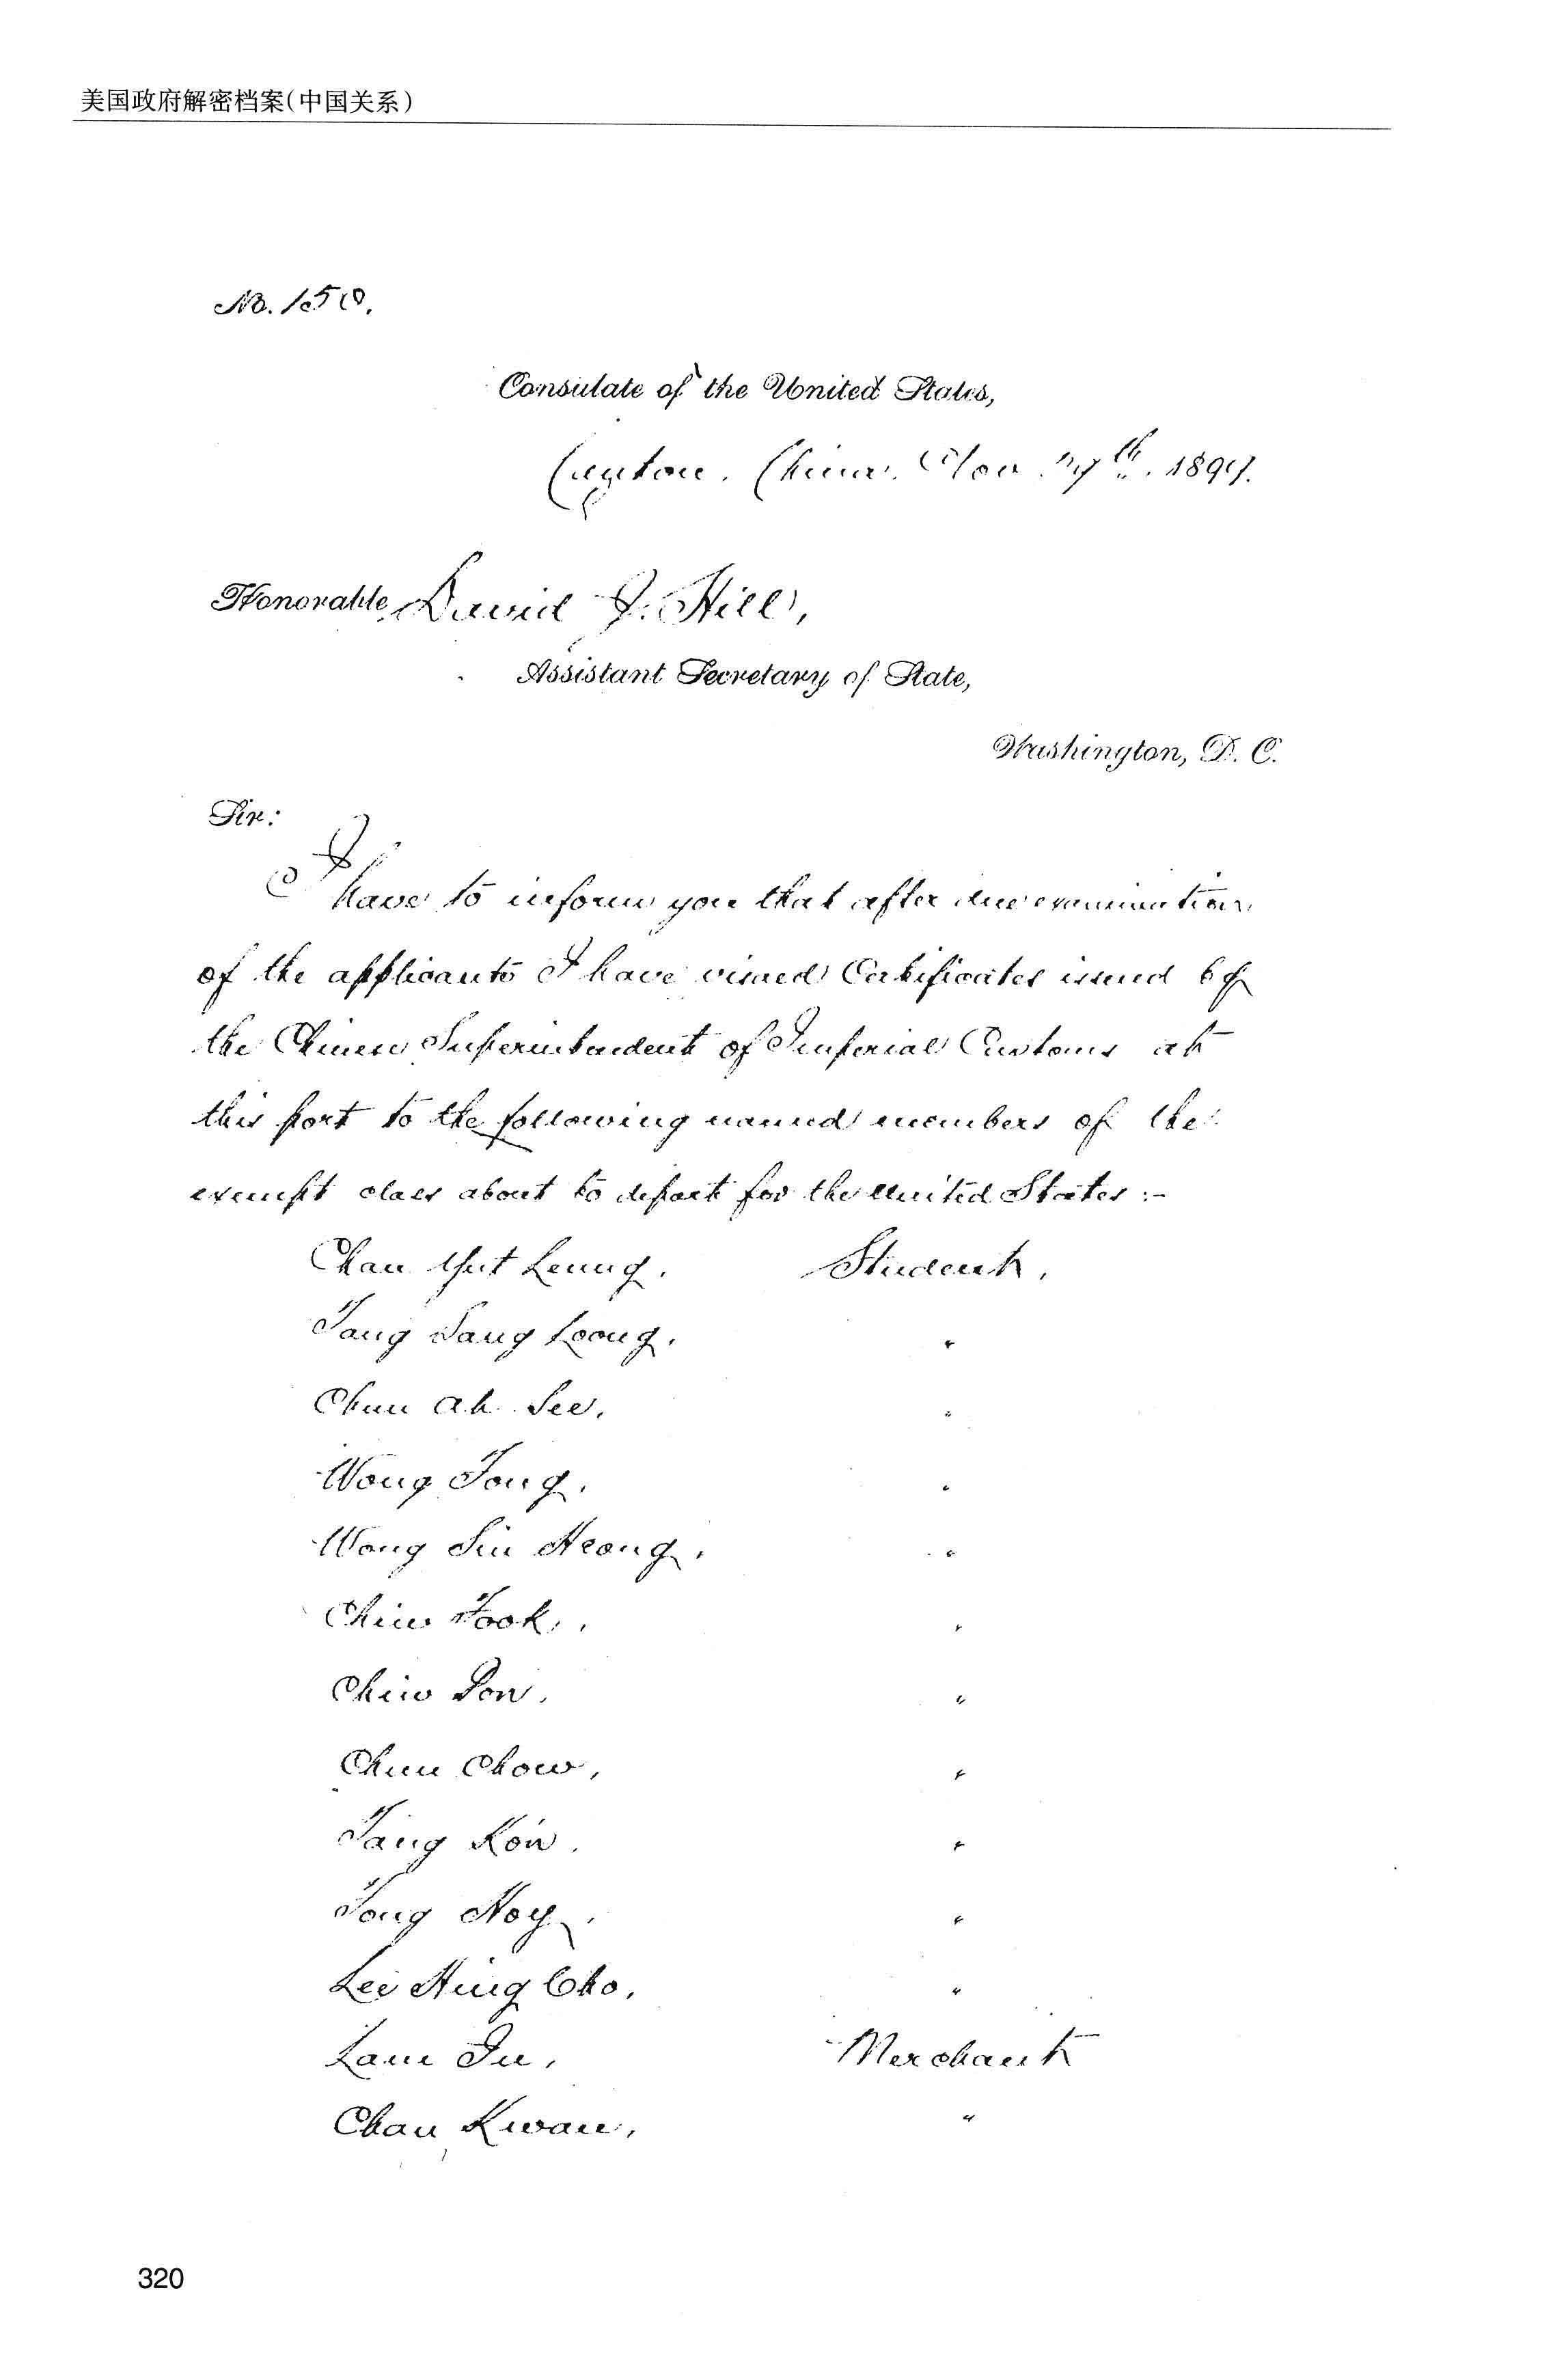 美国政府解密档案(中国关系)
No. 150.
Consulate of the United States,
Canton, China, Nov. 27th. 1899.
Honorable David J. Hill,
Assistant Secretary of State,
Washington, D. C.
Sir:
I have to inform you that after due examination
of the applicants I have visaed Certificates issued by
the Chinese Superintendent of Imperial Customs at
this port to the following named members of the
exempt class about to depart for the United States :-
Chan Yut Leung. Student.
Tang Sang Loong. "
Chun Ah See. "
Wong Tong. "
Wong Sin Heong. "
Chiw Fook. "
Chiw Pon. "
Chun Chow, "
Tang Kon. "
Tong Hoy. "
Lee Hing Cho. "
Lam Fu, Merchant
Chan Kwan, "
320